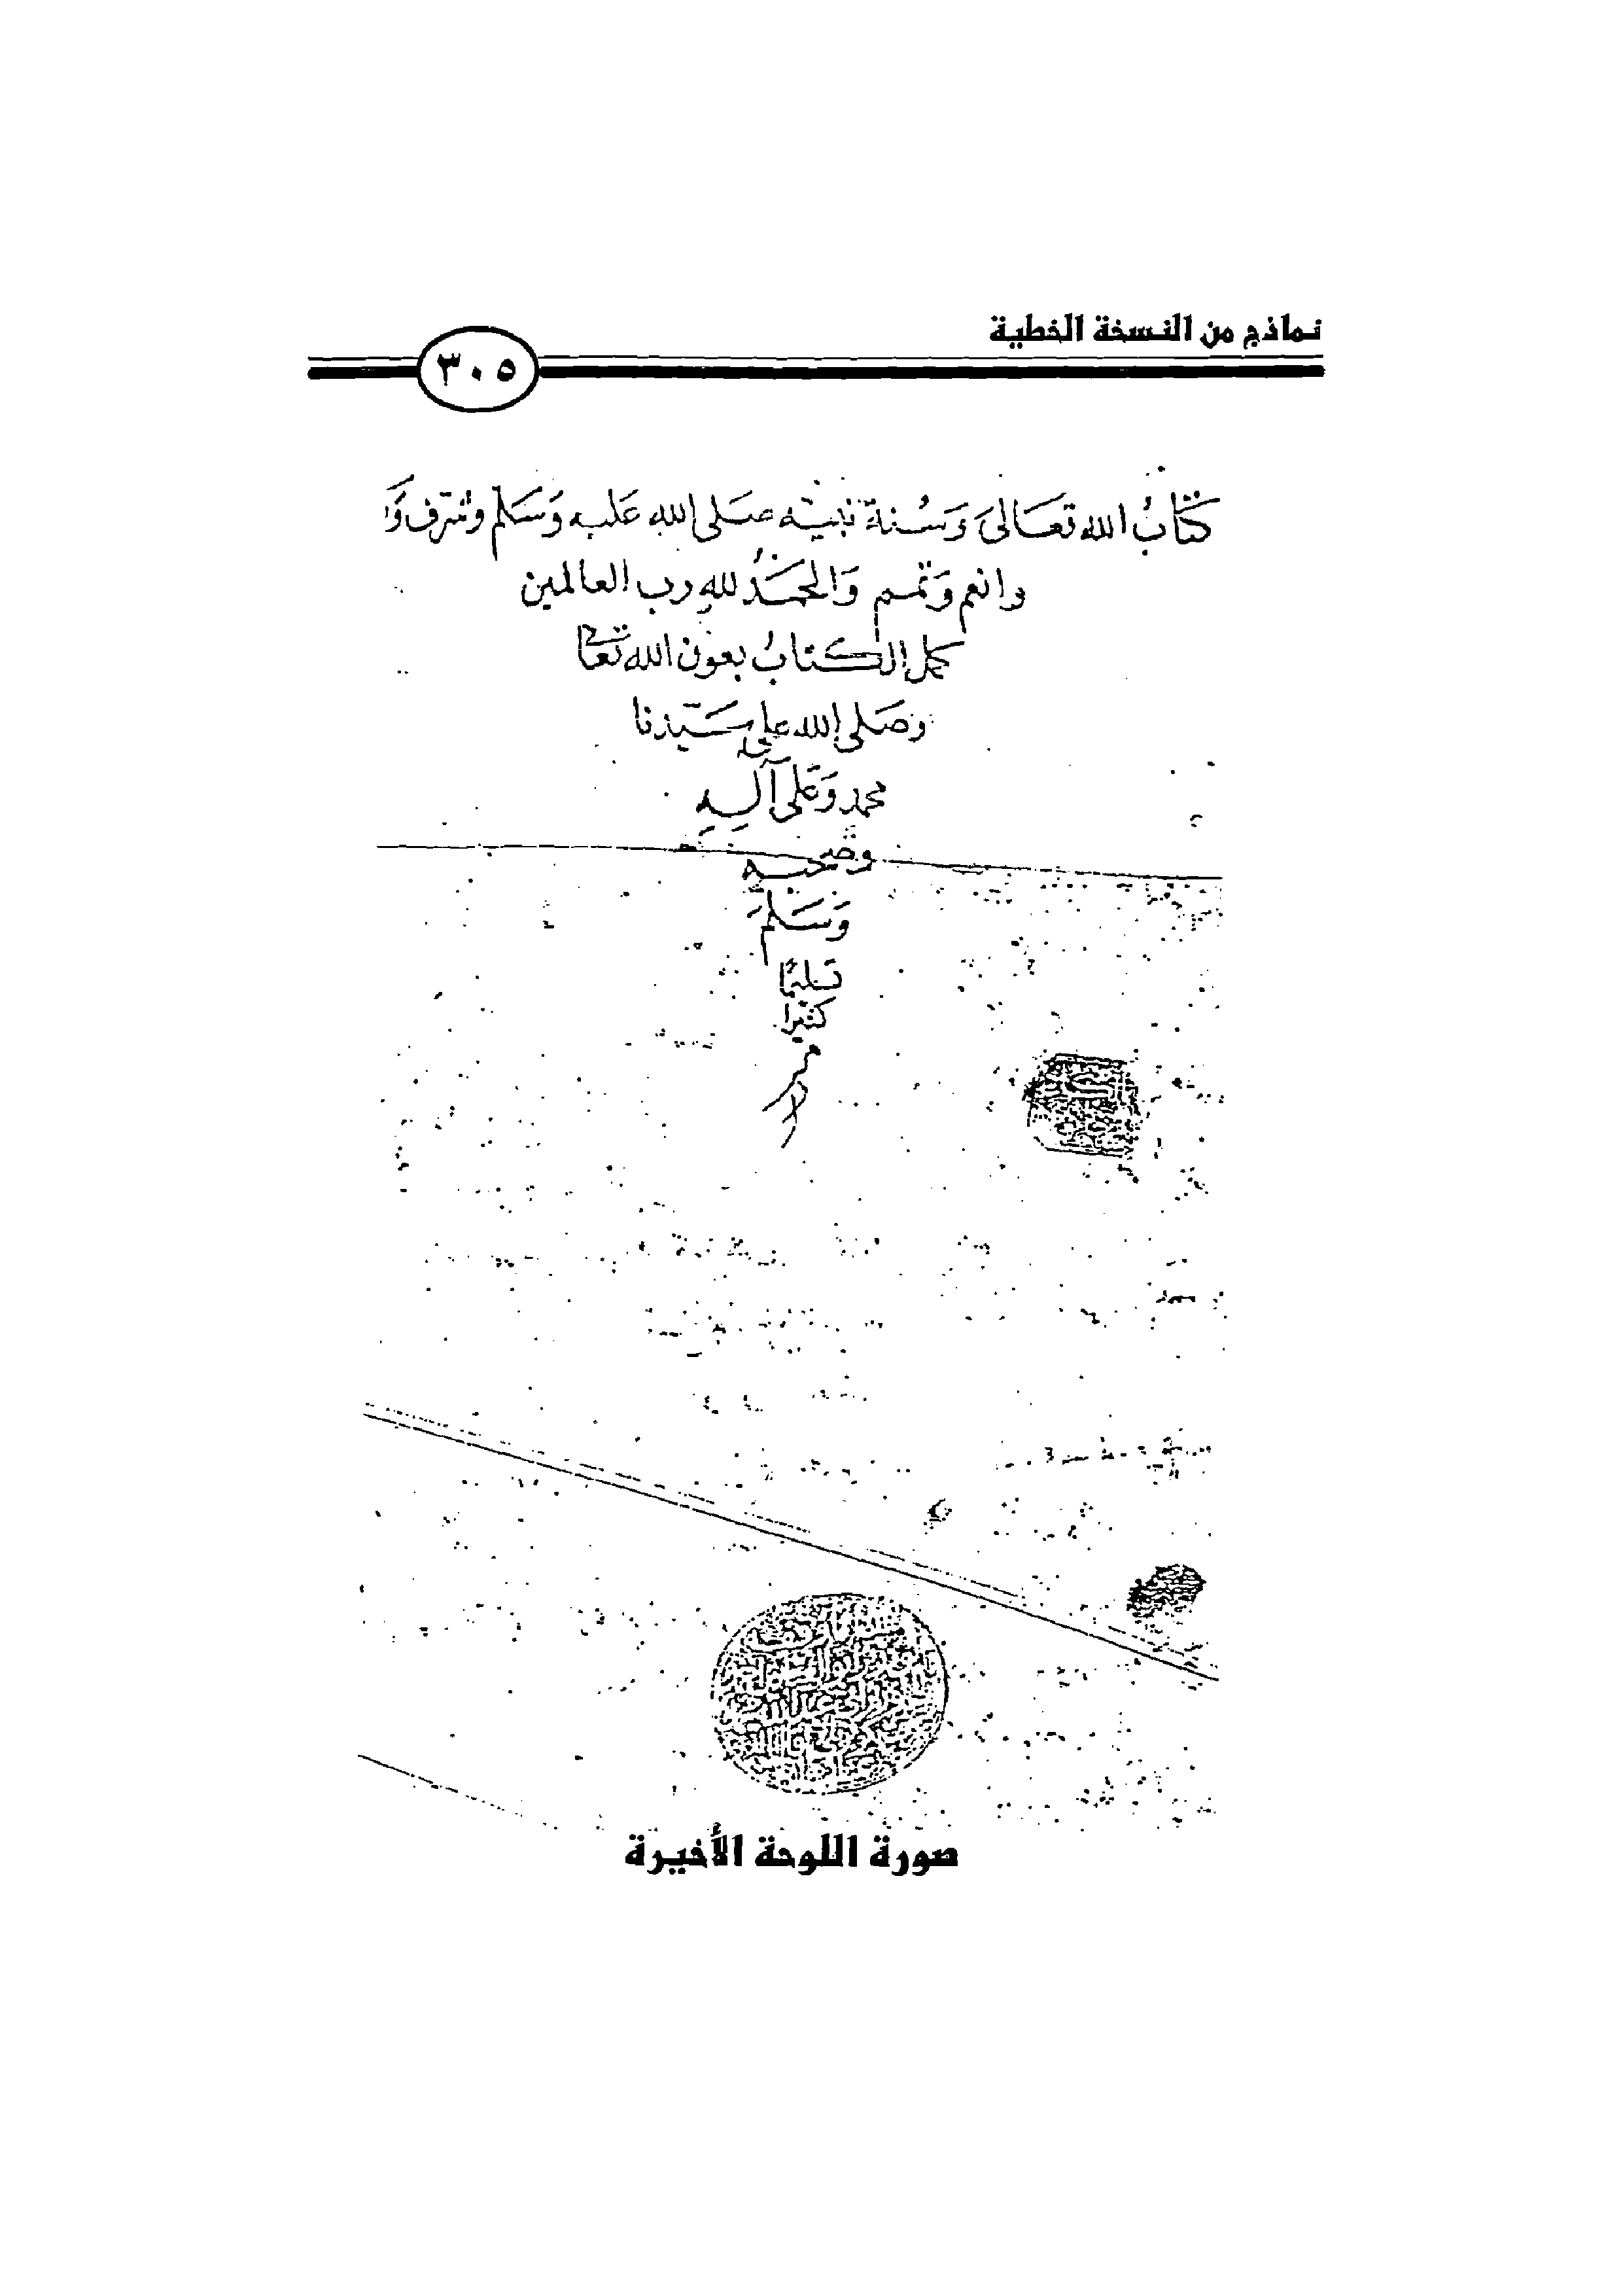 نماذج من النسخة الخطية
٣٠٥
كتابُ الله تعَالىَ وَسُنة نبيّه صَلى الله عَليه وَسَلم وشرف وَا
وانعم وَتمم وَالحمَدُ للهِ رب العالمين
كمل الكتابُ بعون الله تعَا
وصَلى الله على سَيّدنا
محمد وَعَلى آلهِ
وصَحبه
وَسَلمَ
تسليمًا
كثيرًا
صورة اللوحة الأخيرة